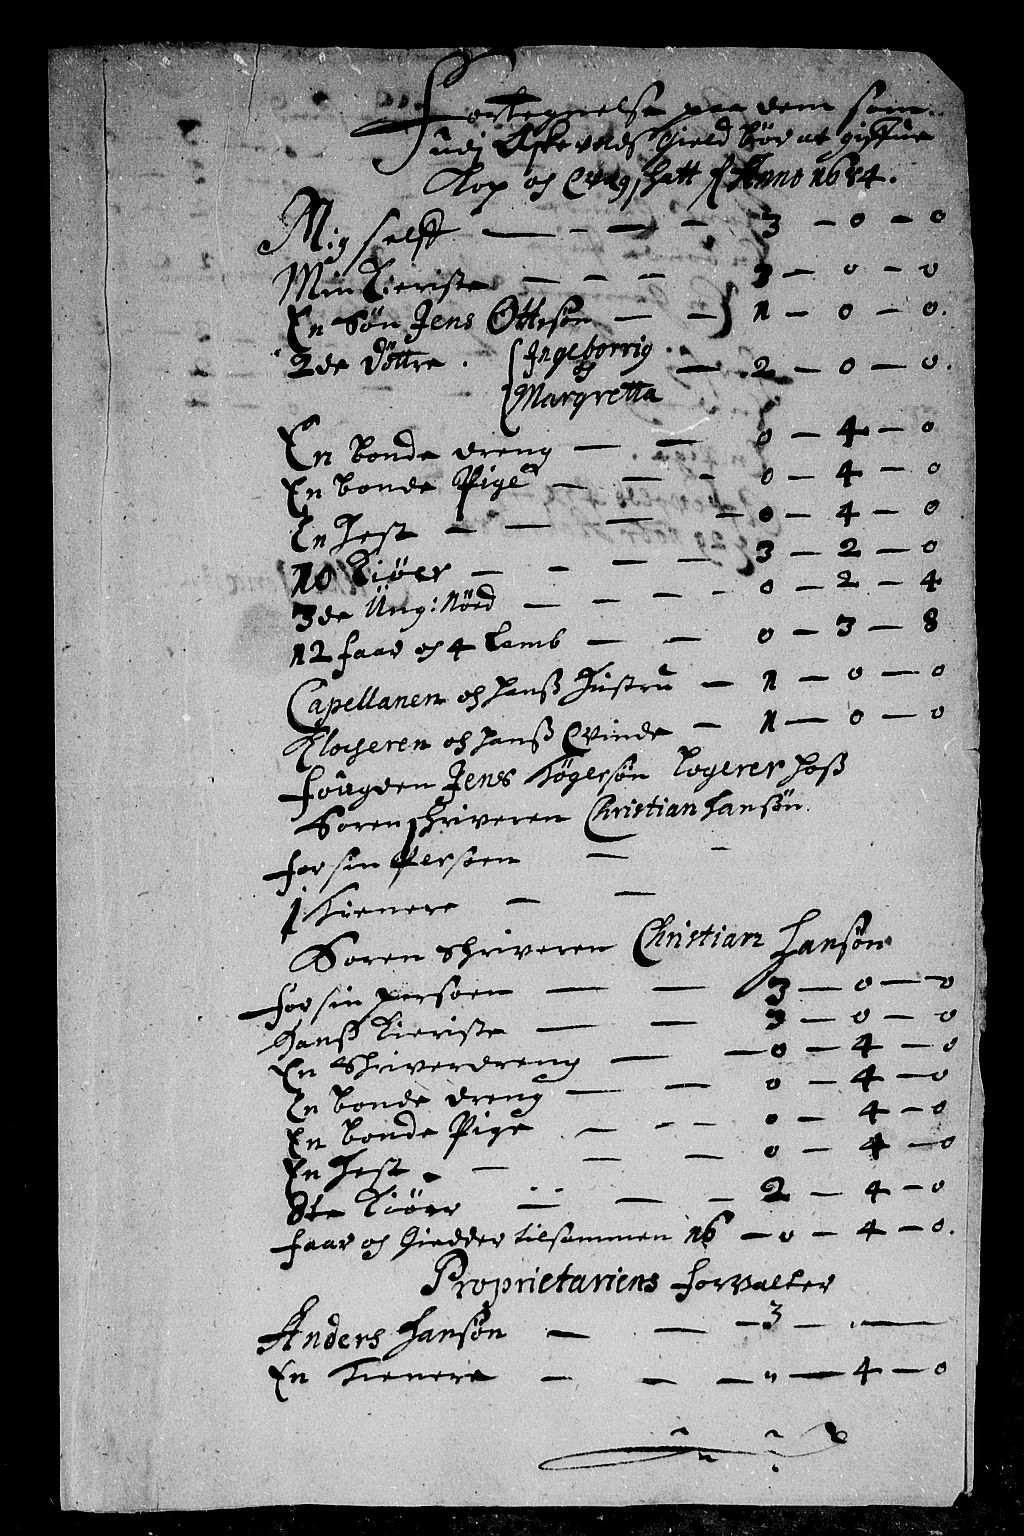 Fortegnelse paa dem som
udj Askevolds Gield bør at gifftue
Kop och Qvegschatt p Anno 1684.
Mig selff — 3 — 0 — 0
Min Kieriste — 3 — 0 — 0
En Søn Jens Ottesøn — 1 — 0 — 0.
2de døttre. Ingeborrig — 2 — 0 — 0.
Margretta
En bonde dreng — 0 — 4 — 0
En bonde Pige — 0 — 4 — 0
En Hest — 0 — 4 — 0
10 Kiøer — 3 — 2 — 0
3de Ung: Nöed — 0 — 2 — 4
12 faar och 4 Lamb — 0 — 3 — 8
Capellanen och hanß Hustru — 1 — 0 — 0
Klocheren och hanß Qvinde — 1 — 0 — 0
fougden Jens Kögersøn Logerer hoß
Sorenschriveren Christian Hansøn.
for sin Persoen —
1 Tienere —
Soren Schriveren Christian Hansøn
for sin persoen — 3 — 0 — 0
Hanß Kieriste — 3 — 0 — 0
En Schriverdreng — 0 — 4 — 0
En bonde dreng — 0 — 4 — 0
En bonde Pige — 0 — 4 — 0
En Hest — 0 — 4 — 0
8te Kiøer — 2 — 4 — 0
faar och Giedder tilsammen 16 — 0 — 4 — 0.
Proprietariens forvalter
Anders Hansøn — 3 —
En Tienere — " — 4 — 0